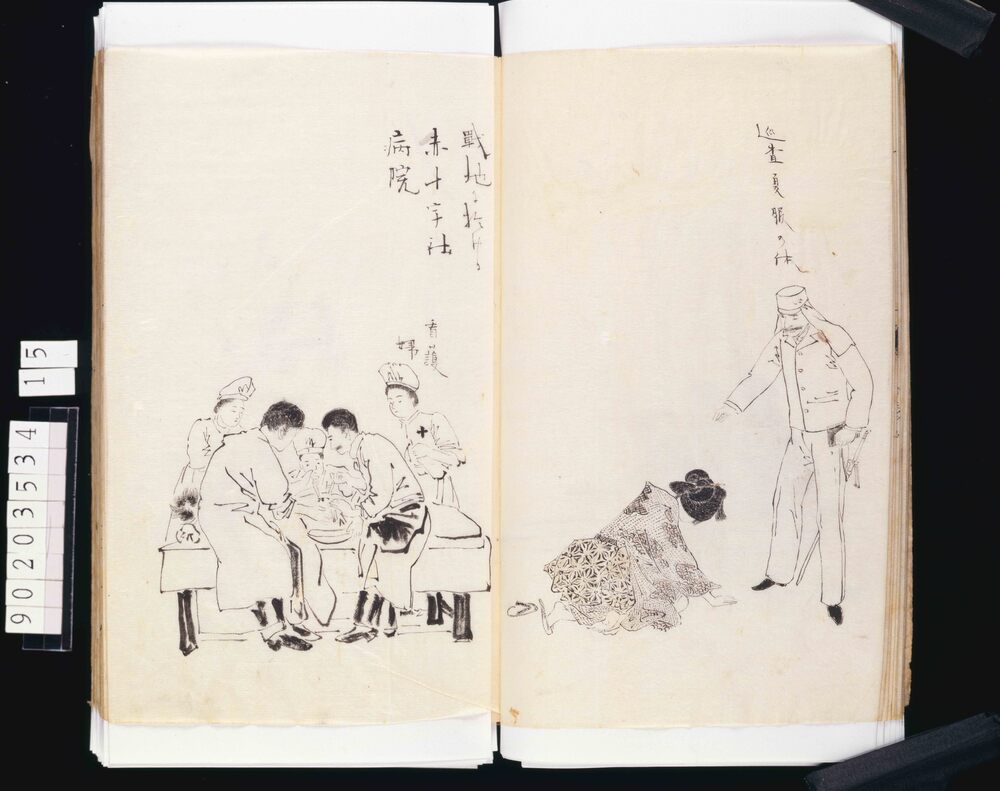 巡査夏服の体
戰地に於ける
赤十字社
病院
看護
婦
15
90203534